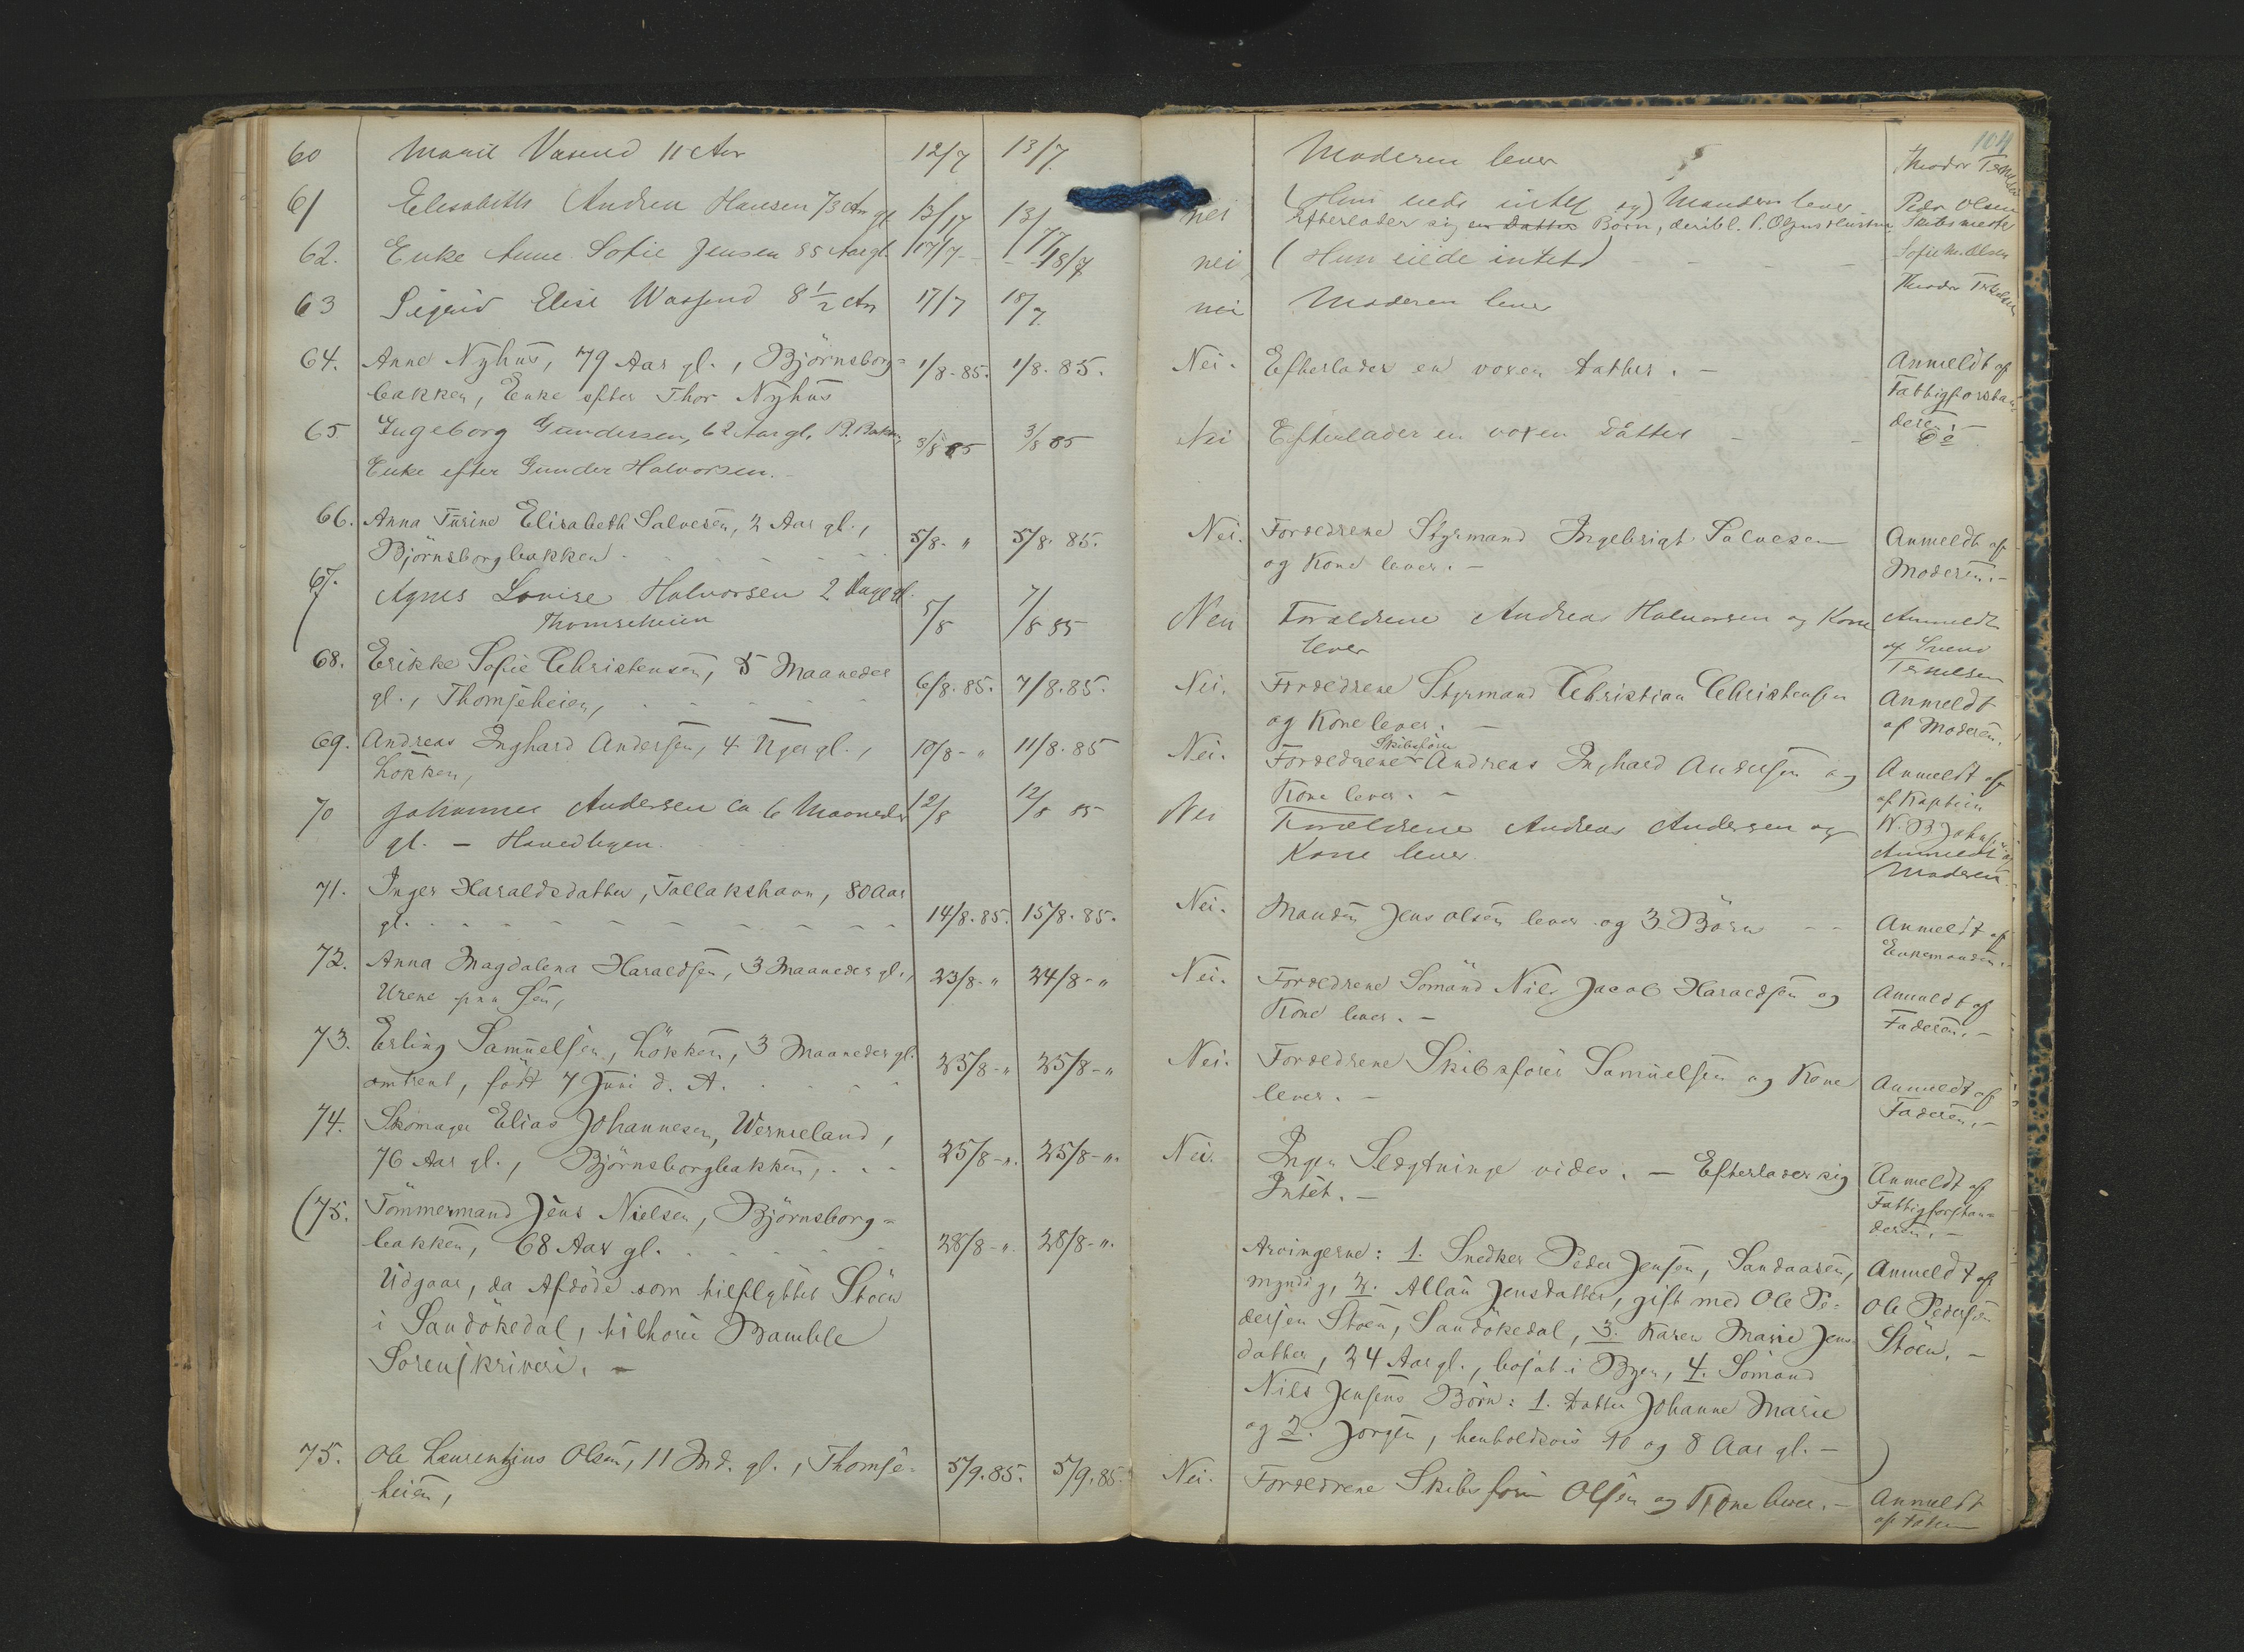 104
60 Marie Vasend 11 Aar 12/7 13/7. Moderen lever Theodor
61 Elisabeth Andrea Hansen 73 Aar gl 13/7 13/7 nei (Hun eiede intet og) Manden lever Peder Olsen
efterlader sig en Datter Börn, deribl. P. Olsens Hustru. Skibsmester
62. Enke Anne Sofie Jensen 85 Aar gl. 17/7 - 18/7 nei (Hun eiede intet) - - - Sofie M. Olsen
63 Sigrid Elise Wassend 8 1/2 Aar 17/7 18/7 nei Moderen lever Theodor
64. Anne Nyhus, 79 Aar gl., Björnsborg- 1/8-85. 1/8.85. Nei. Efterlader en voxen Datter. - Anmeldt af
bakken, Enke efter Thor Nyhus Fattigforstan-
deren.-
65 Ingeborg Gundersen, 62 Aar gl. B. Bakn, 3/8 85 3/8 85 Nei Efterlader en voxen Datter - - Do.
Enke efter Gunder Halvorsen. -
66. Anna Turine Elisabeth Salvesen, 2 Aar gl., 5/8. " 5/8. 85. Nei. Forældrene Styrmand Ingebrigt Salvesen Anmeldt af
Björnsborgbakken og Kone lever. - Moderen.-
67. Agnes Lovise Halvorsen 2 Dage gl. 5/8 7/8 85 Nei Forældrene Andreas Halvorsen og Kone Anmeldt
Thomseheien lever af Svend
68. Erikke Sofie Christensen, 5 Maaneder 6/8.85. 7/8.85. Nei. Forældrene Styrmand Christian Christensen Anmeldt
gl., Thomseheien, og Kone lever. - af Moderen.
69. Andreas Inghard Andersen, 4 Uger gl., 10/8-" 11/8.85 Nei. Forældrene Skibsförer Andreas Inghard Andersen og Anmeldt af
Lökken, Kone lever. - af Kaptein
N. B. Johnsen
70 Johannes Andersen ca 6 Maaneder 12/8 12/8 85 Nei Forældrene Andreas Andersen og Anmeldt af
gl. - Havedbyen. Kone lever. Moderen
71. Inger Haraldsdatter, Tallakshavn, 80 Aar 14/8.85. 15/8.85. Nei. Manden Jens Olsen lever og 3 Börn - - Anmeldt af
gl. - - - - Enkemanden.-
72. Anna Magdalena Haraldsen, 3 Maaneder gl., 23/8-" 24/8-" Nei. Forældrene Sömand Nils Jacob Haraldsen og Anmeldt af
Urene paa Öen, Kone lever. - Faderen. -
73. Erling Samuelsen, Lökken, 3 Maaneder gl. 25/8-" 25/8-" Nei. Forældrene Skibsförer Samuelsen og Kone Anmeldt af
omtrent, född 7 Juni d. A. lever. - Faderen. -
74. Skomager Elias Johannesen, Wermeland, 25/8-". 25/8-". Nei. Ingen Slægtninge vides. - Efterlader sig Anmeldt af
76 Aar gl., Björnsborgbakken, Intet. - Fattigforstan=
deren. -
(75. Tömmermand Jens Nielsen, Björnsborg= 28/8-". 28/8-". Arvingerne: 1. Snedker Peder Jensen, Sandaasen, Anmeldt af
bakken, 68 Aar gl. myndig, 2. Allau Jensdatter, gift med Ole Pe= Ole Pedersen
Udgaar, da Afdöde som tilflyttet Stöen dersen Stöen, Sandökedal, 3. Karen Marie Jens Stöen. -
i Sandökedal, tilhörer Bamble datter, 24 Aar gl., bosat i Byen, 4. Sömand
Sorenskriveri. - Nils Jensens Börn: 1. Datter Johanne Marie
og 2. Jörgen, henholdsvis 10 og 8 Aar gl. - )
75. Ole Laurentzius Olsen, 11 Md. gl., Thomse- 5/9.85. 5/9.85. Nei. Forældrene Skibsförer Olsen og Kone lever. - Anmeldt
heien, af Faderen